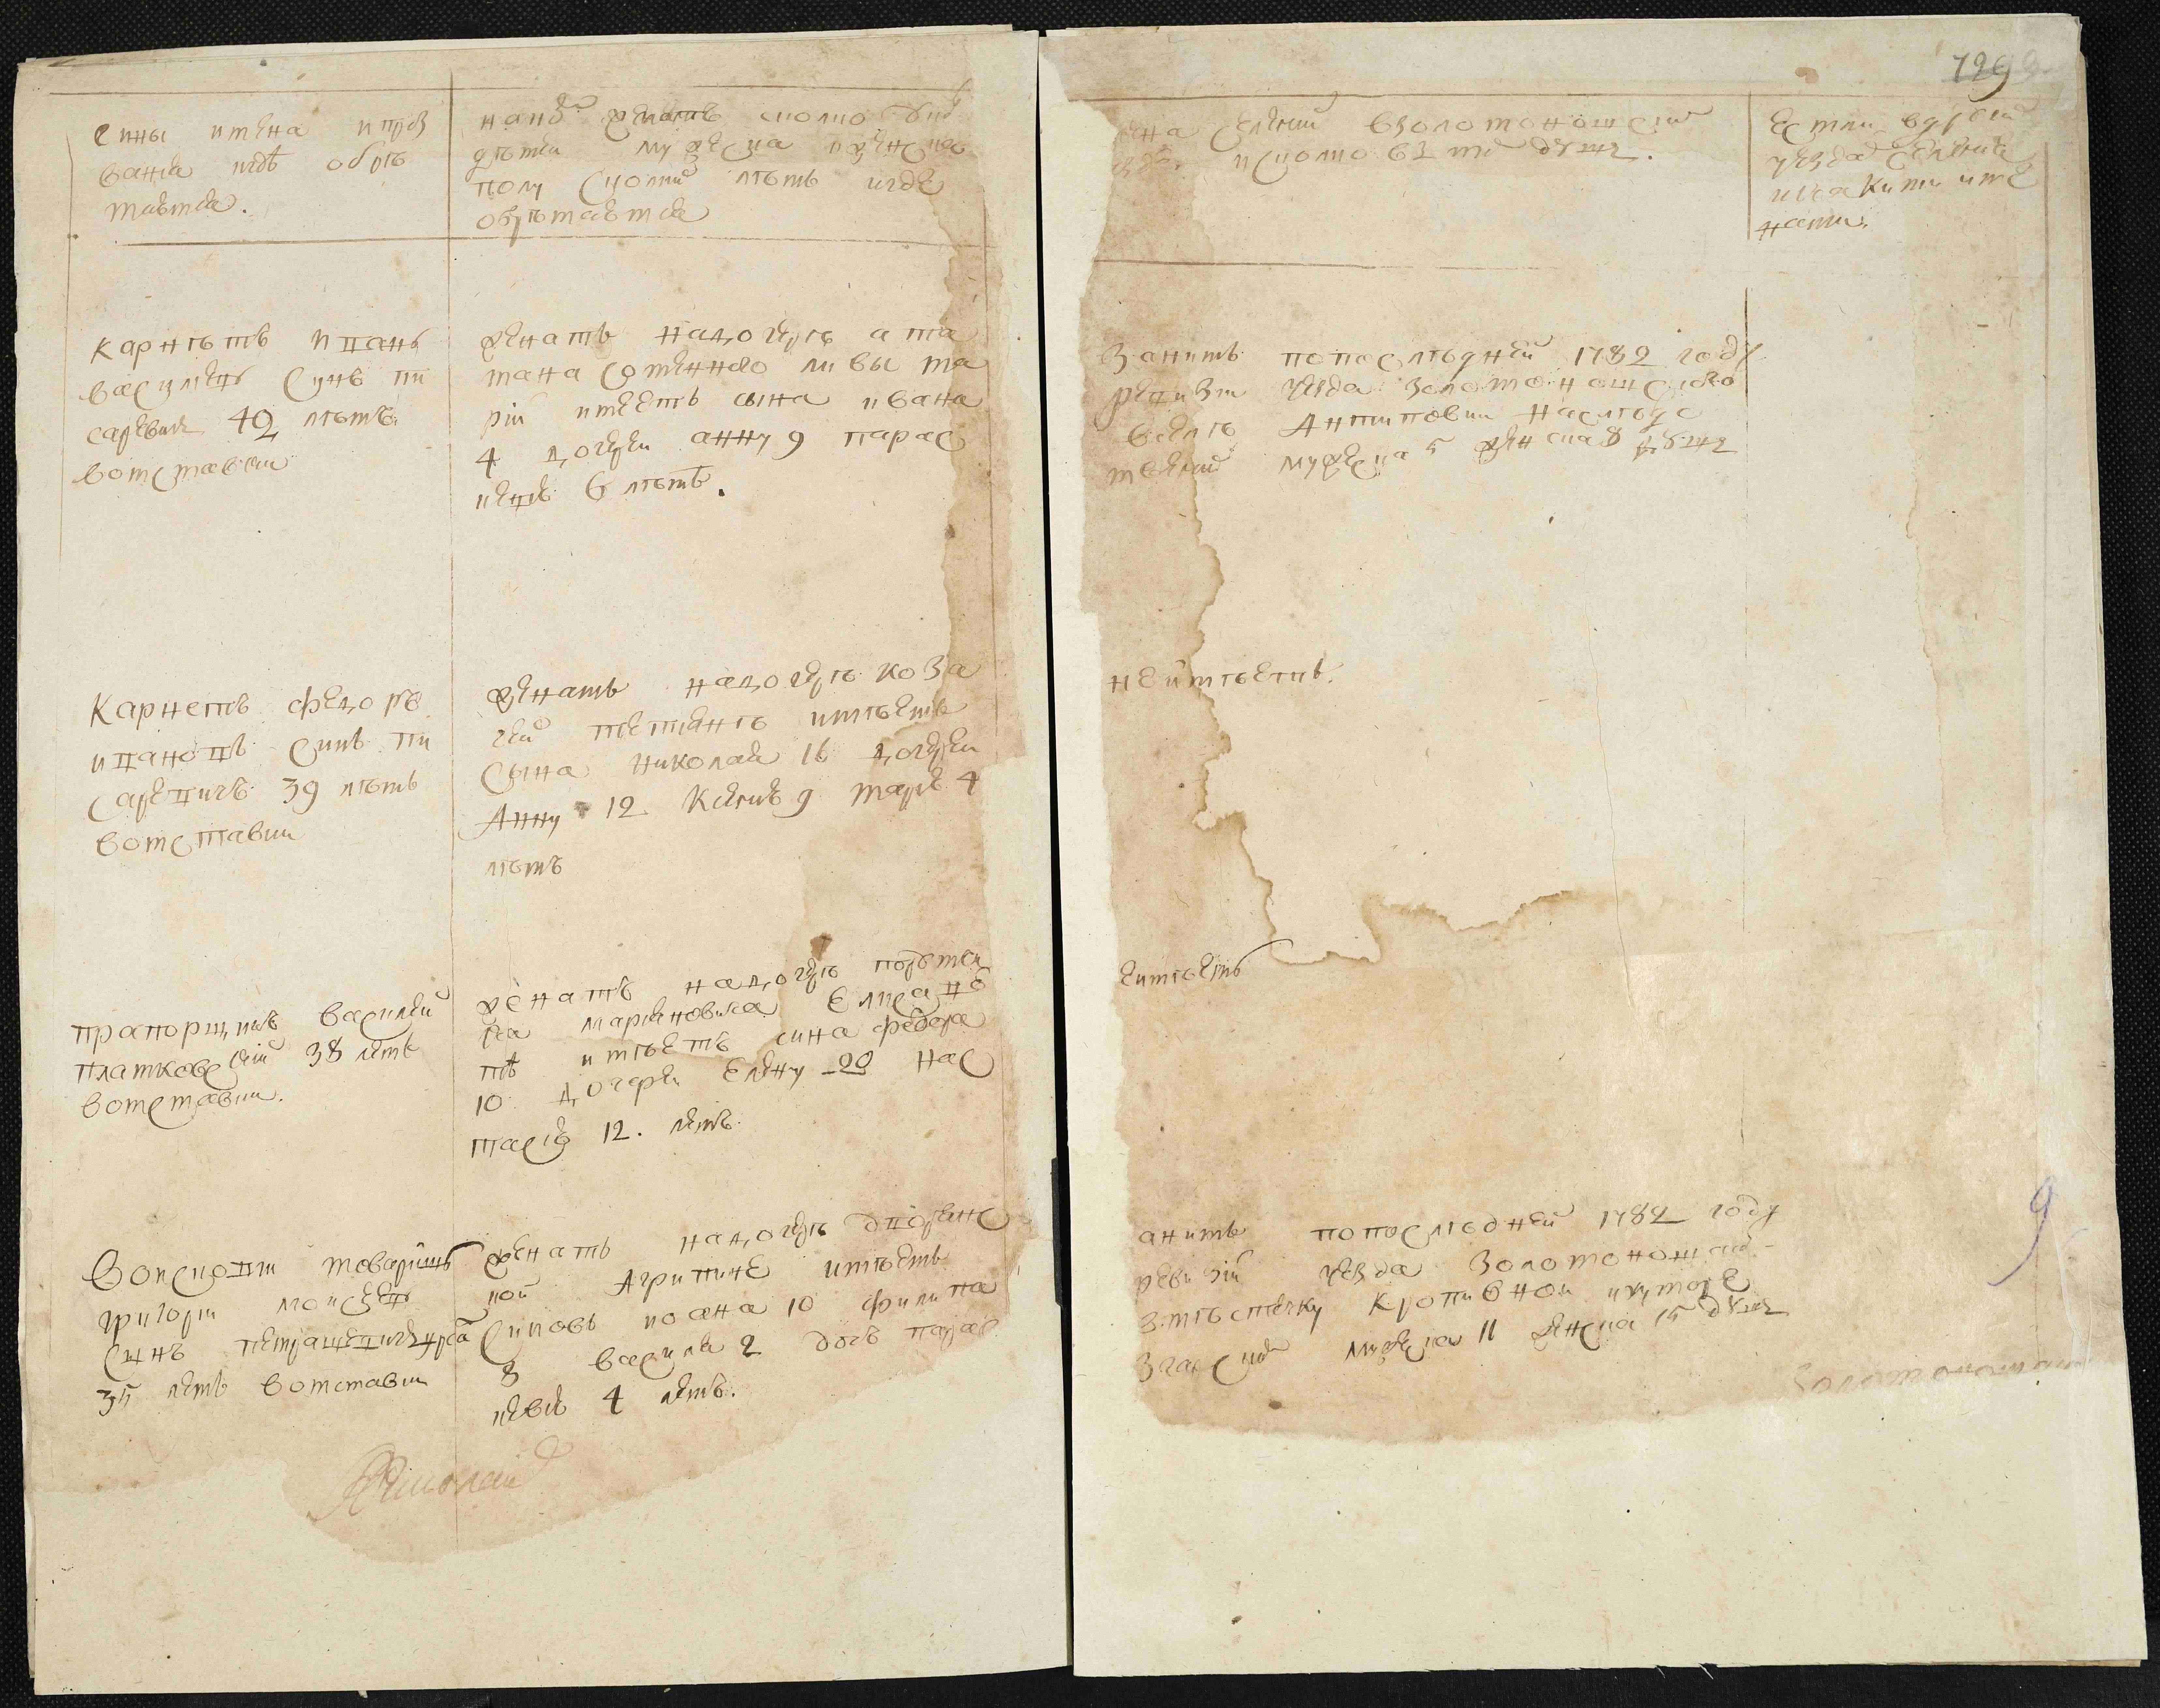 729
Чины имена и проз
вания игдѣ обрѣ
таются.
на ком женатъ сколко
дѣтей мужеска и женска
полу сколких лѣтъ игде
обрѣтаются
имена селений в золотоношском
и сколко в них душъ.
Естли в другом
уезде селения
и за кими име
нами.
Карнѣтъ иванъ
василиевъ синъ пи
саревич 42 лѣтъ
вотставки
женатъ надочерѣ ата
мана сотенного ма
рии имеетъ сына ивана
4 дочери анну 9 парас
кевию 6 лѣтъ.
Занимъ попослѣдней 1782 году
ревизии уезда золотоношского
в селѣ Антиповки наслѣдс
твених мужеска 5 женска 8 душъ
Карнетъ федоръ
ивановъ синъ пи
саревичъ 39 лѣтъ
вотставки
женатъ надочерѣ коза
чей татиянѣ имѣетъ
сына николая 16 дочери
Анну 12 Ксению 9 марию 4
лѣтъ
неимѣетъ.
прапорщикъ василий
платковский 38 летъ
вотставки.
женатъ надочерѣ поручи
ка мариановича елисаве
тѣ имѣетъ сина федора
10 дочери елену 20 нас
тасию 12. летъ
неимѣетъ
Войсковий товарищъ
григорий моисеевъ
синъ
35 летъ вотставки
женатъ надочерѣ дворянс
кой Агрипине имѣетъ
синовъ иоана 10 филипа
8 василия 2 дочъ парас
кевию 4 летъ.
занимъ попослѣдней 1782 году
ревизии уезда золотоношского
вмѣстечку кропивной и хуторе
згарском мужеска 11 женска 15 душъ
Николай
9